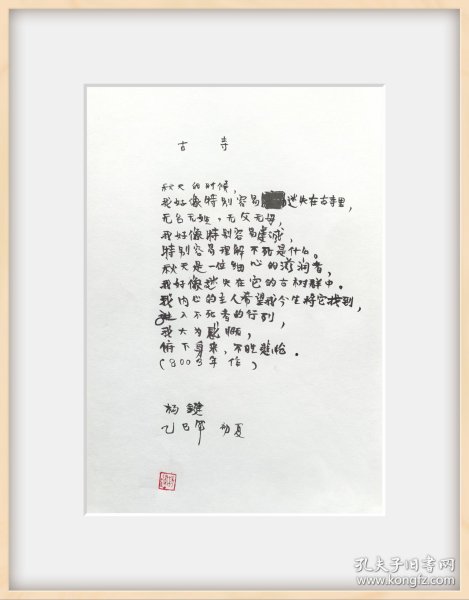 古 寺
秋天的时候，
我好像特别容易迷失在古寺里，
无名无姓，无父无母，
我好像特别容易虔诚，
特别容易理解不死是什么。
秋天是一位细心的滋润者，
我好像迷失在它的古树群中。
我内心的主人希望我今生将它找到，
进入不死者的行列，
我大为感慨，
俯下身来，不胜悲怆。
（2003年 作）
杨 键
乙巳年 初夏
孔夫子旧书网
www.kongfz.com